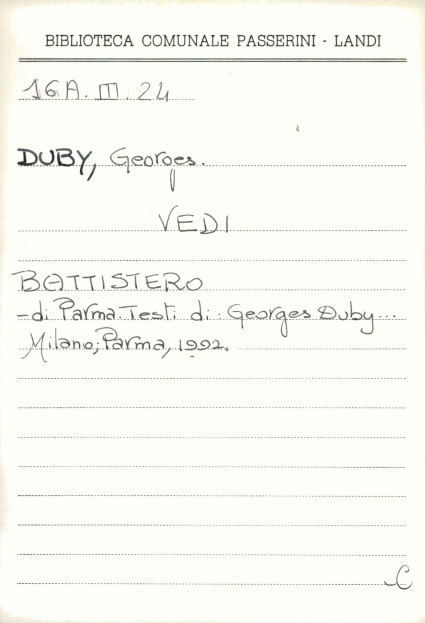 BIBLIOTECA COMUNALE PASSERINI - LANDI
16A.III.24
DUBY, Georges.
VEDI
BATTISTERO
- di Parma. Testi di: Georges Duby...
Milano; Parma, 1992.
C